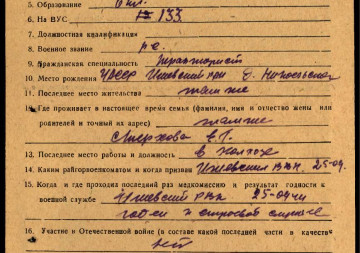 5. Образование 6 кл.
6. На ВУС 133
7. Должностная квалификация
8. Военное звание
9. Гражданская специальность тракторист
10. Место рождения Ижевский д. Никольское
11. Последнее место жительства там же
12. Где проживает в настоящее время семья (фамилия, имя и отчество жены или
родителей и точный их адрес) там же
13. Последнее место работы и должность в колхозе
14. Каким райгорвоенкоматом и когда призван Ижевский РВК 25-04.
15. Когда и где проходил последний раз медкомиссию и результат годности к
военной службе Ижевский РВК 25-04-44
годен к строевой службе
16. Участие в Отечественной войне (в составе какой последней части в качестве
нет